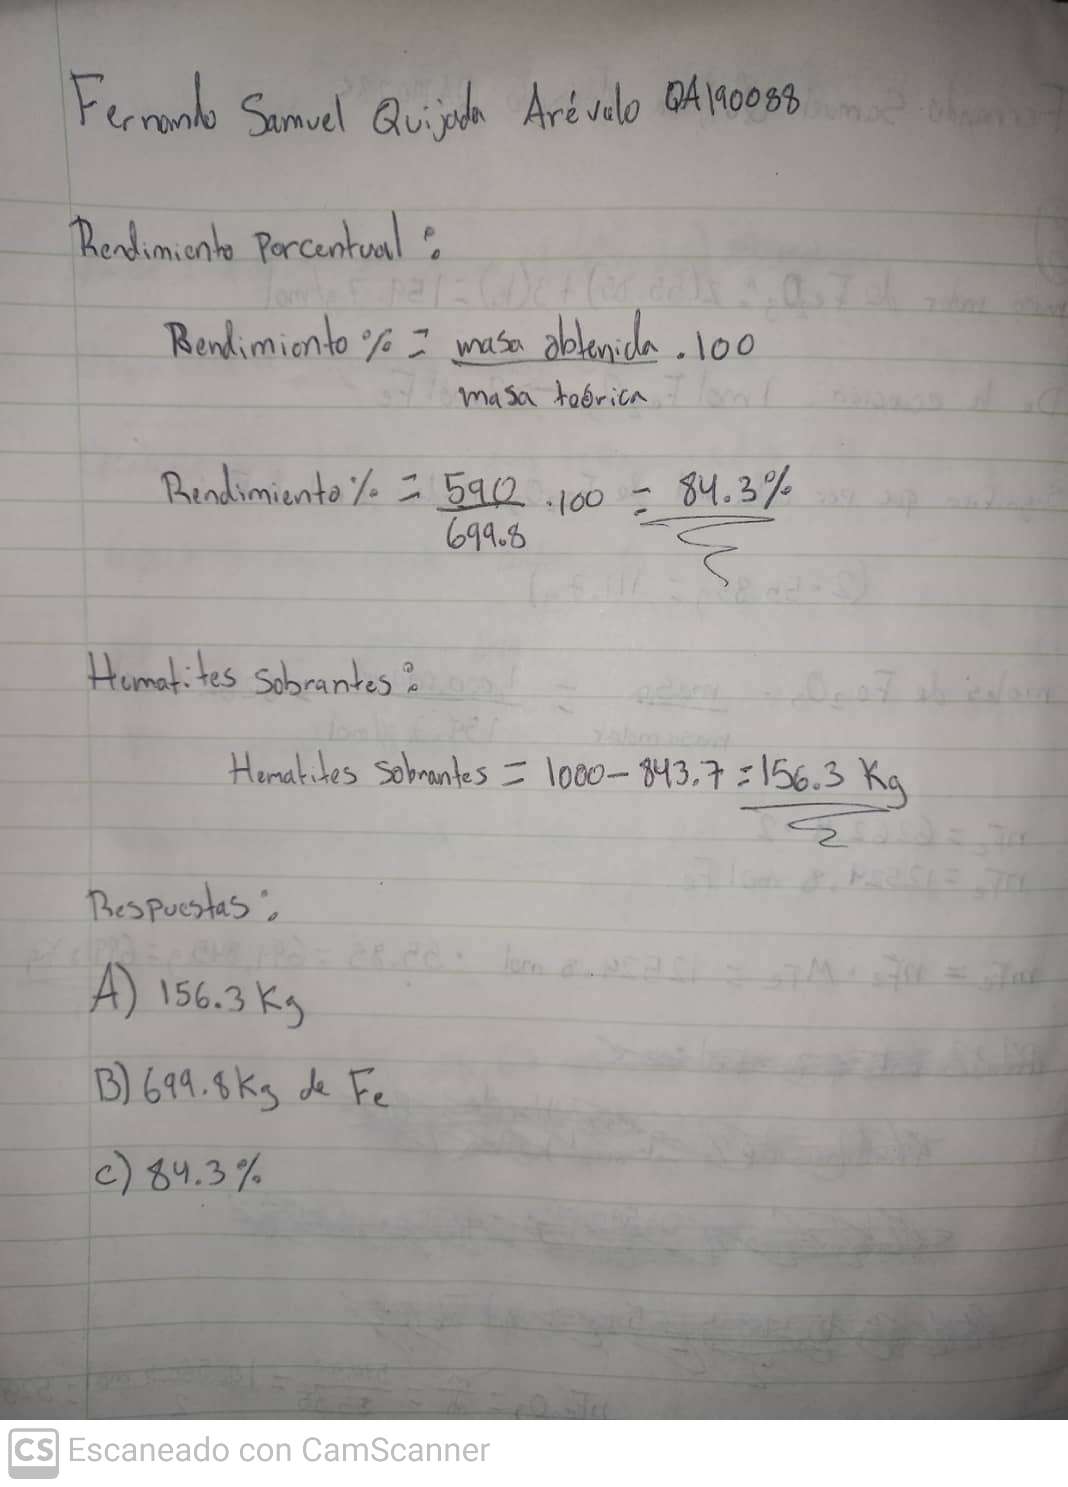 Fernando Samuel Quijada Arévalo QA190088
Rendimiento Porcentual:
Rendimiento % = masa obtenida . 100
masa teórica
Rendimiento % = 590 . 100 = 84.3%
699.8
Hematites Sobrantes:
Hematites Sobrantes = 1000 - 843.7 = 156.3 Kg
Respuestas:
A) 156.3 Kg
B) 699.8 Kg de Fe
C) 84.3%
CS Escaneado con CamScanner